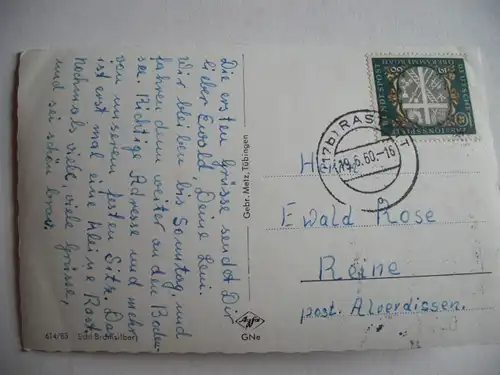 Die ersten Grüsse sendet Dir
lieber Ewald, Deine Leni.
Wir bleiben bis Sonntag, und
fahren dann weiter an den Boden-
see. Richtige Adresse und mehr
von unserem festen Sitz. Das
ist erst mal eine kleine Rast.
Nochmals viele, viele Grüsse,
und sei schön brav.
Gebr. Metz, Tübingen
614/63 Echt Bromsilber
Agfa
GNe
DEUTSCHE
BUNDESPOST
OBERAMMERGAU
PASSIONSSPIELE
10
(17b) RAS
19.6.60.-16
a
Herrn
Ewald Rose
Reine
post. Alverdissen.